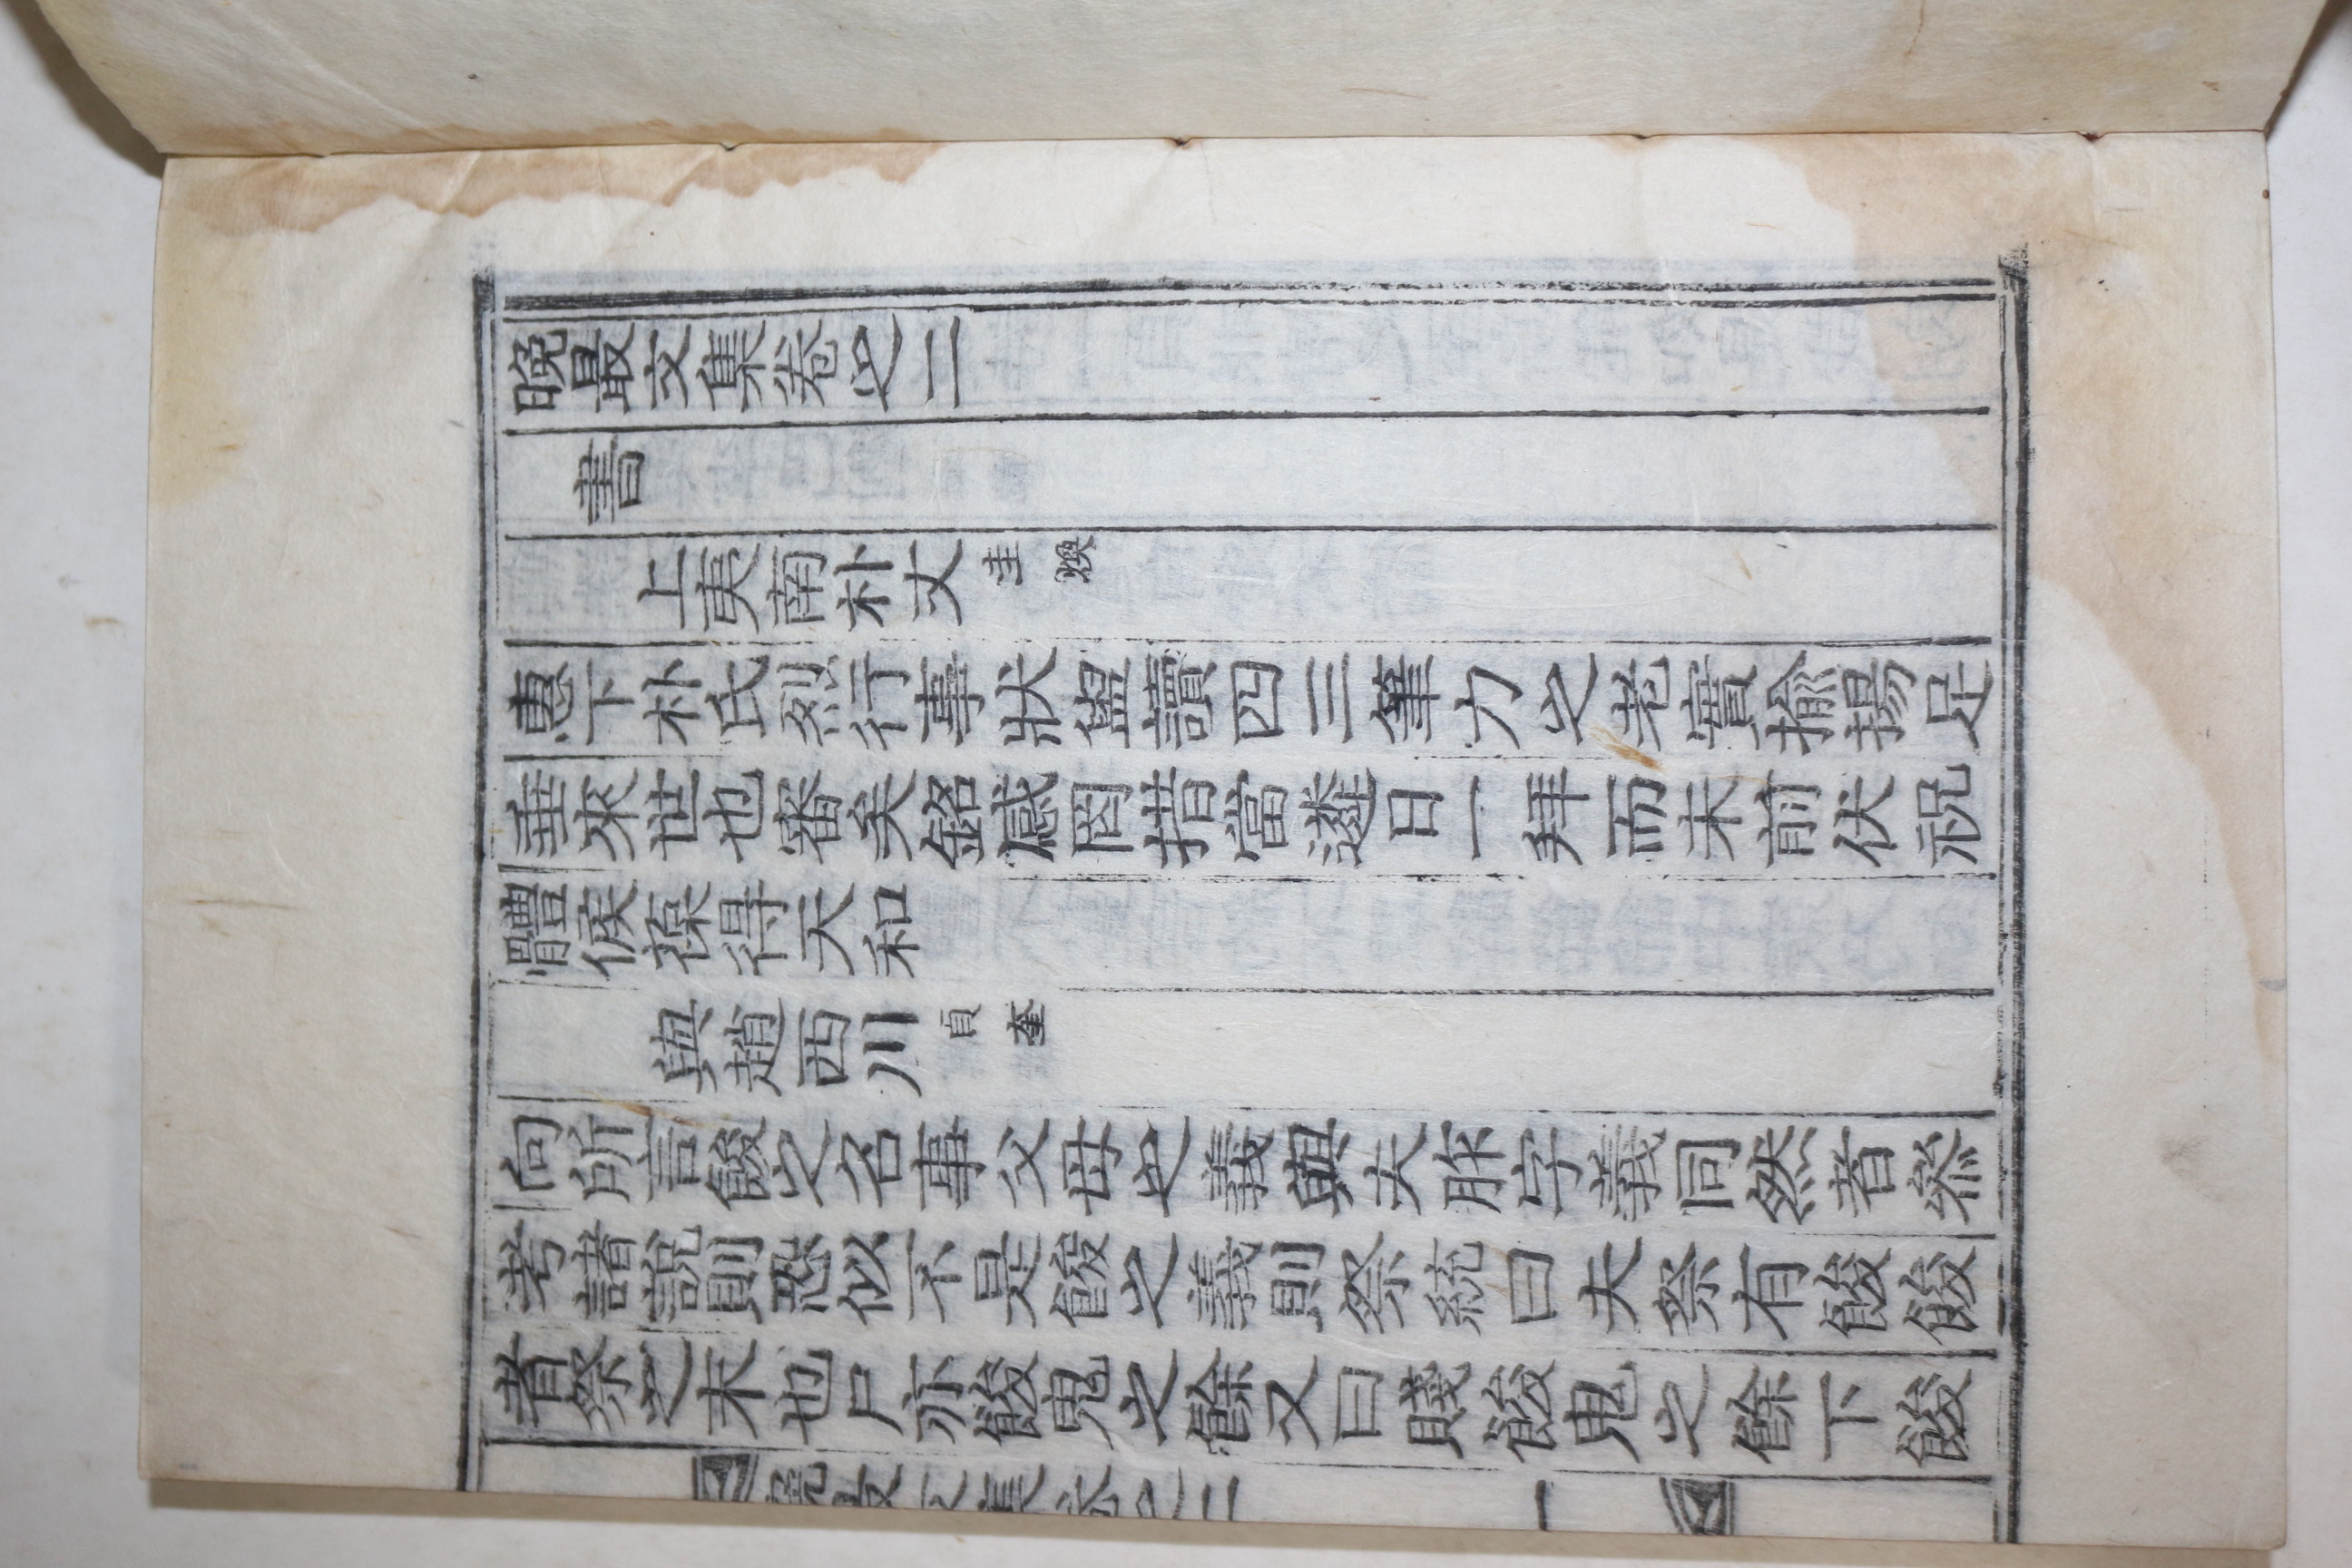 晩最文集卷之二
書
上夷南朴丈圭煥
惠下朴氏烈行事狀盥讀四三筆力之老實揄揚足
垂來世也審矣銘感罔措當遴日一拜而未前伏祝
體候葆得天和
與趙西川貞奎
向所言餕之名事父母也義與夫胙字義同然者叅
考諸說則恐似不是餕之義則祭統曰夫祭有餕餕
者祭之末也尸亦餕鬼之餘又曰賤餕鬼之餘下餕
晩最文集卷之二 一